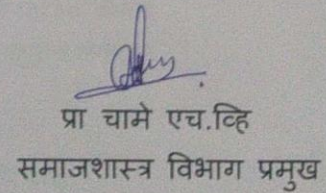 प्रा चामे एच.व्हि
समाजशास्त्र विभाग प्रमुख